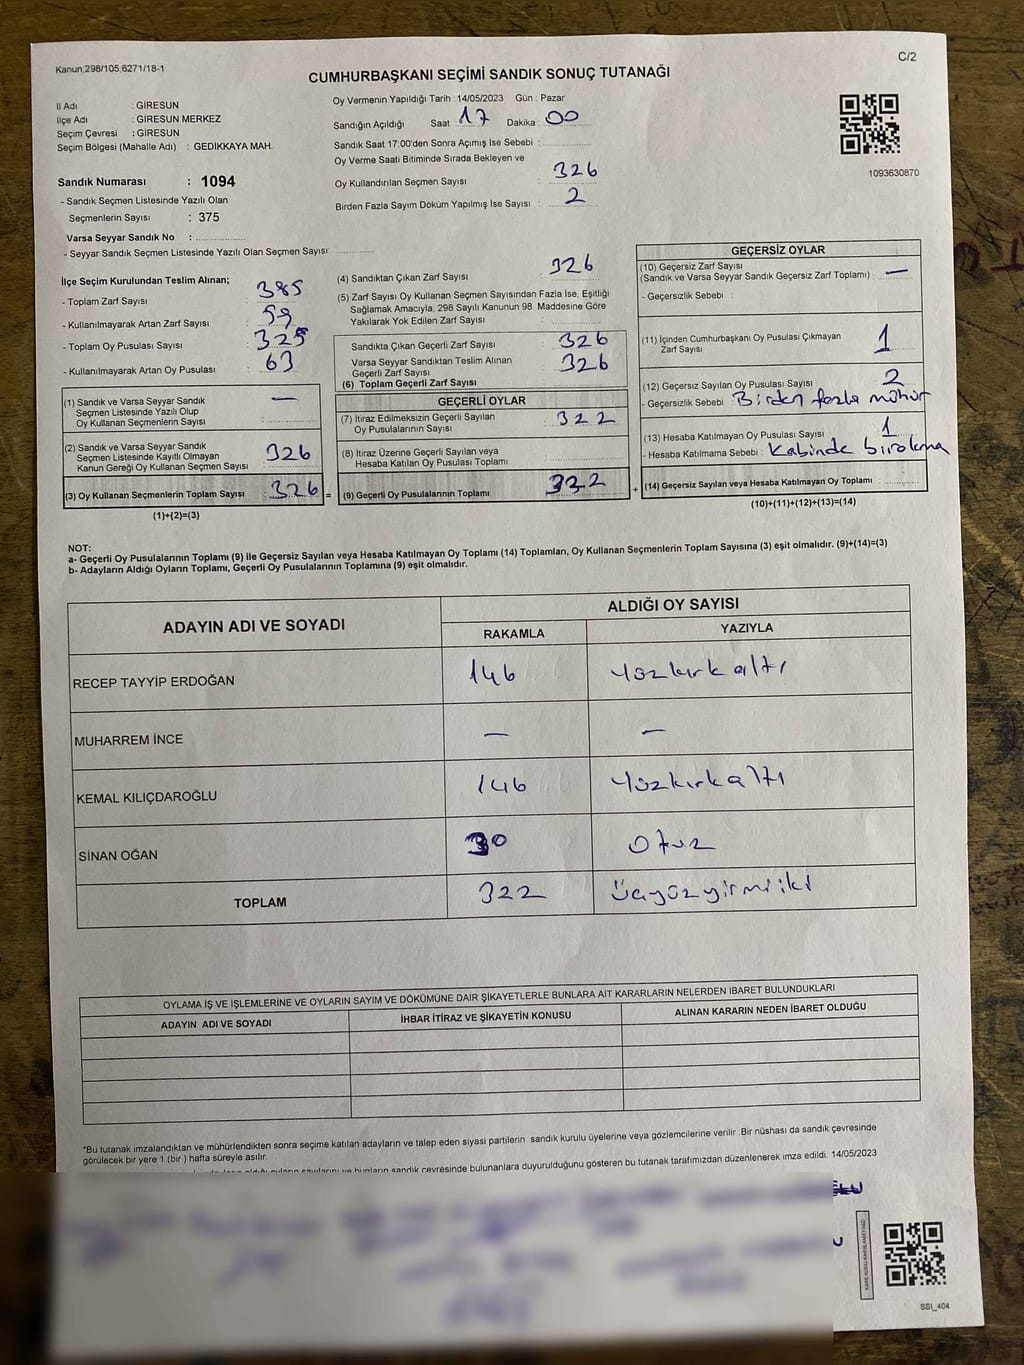 Kanun,298/105,6271/18-1
C/2
CUMHURBAŞKANI SEÇİMİ SANDIK SONUÇ TUTANAĞI
İl Adı : GİRESUN
İlçe Adı : GİRESUN MERKEZ
Seçim Çevresi : GİRESUN
Seçim Bölgesi (Mahalle Adı) : GEDİKKAYA MAH.
Sandık Numarası : 1094
- Sandık Seçmen Listesinde Yazılı Olan
Seçmenlerin Sayısı : 375
Varsa Seyyar Sandık No :
- Seyyar Sandık Seçmen Listesinde Yazılı Olan Seçmen Sayısı:
Oy Vermenin Yapıldığı Tarih : 14/05/2023 Gün : Pazar
Sandığın Açıldığı Saat 17 Dakika : 00
Sandık Saat 17:00'den Sonra Açımış İse Sebebi :
Oy Verme Saati Bitiminde Sırada Bekleyen ve
Oy Kullandırılan Seçmen Sayısı : 326
Birden Fazla Sayım Döküm Yapılmış İse Sayısı : 2
1093630870
İlçe Seçim Kurulundan Teslim Alınan;
- Toplam Zarf Sayısı : 385
- Kullanılmayarak Artan Zarf Sayısı : 59
- Toplam Oy Pusulası Sayısı : 325
- Kullanılmayarak Artan Oy Pusulası : 63
(1) Sandık ve Varsa Seyyar Sandık
Seçmen Listesinde Yazılı Olup
Oy Kullanan Seçmenlerin Sayısı : —
(2) Sandık ve Varsa Seyyar Sandık
Seçmen Listesinde Kayıtlı Olmayan
Kanun Gereği Oy Kullanan Seçmen Sayısı : 326
(3) Oy Kullanan Seçmenlerin Toplam Sayısı : 326 =
(1)+(2)=(3)
(4) Sandıktan Çıkan Zarf Sayısı : 326
(5) Zarf Sayısı Oy Kullanan Seçmen Sayısından Fazla İse, Eşitliği
Sağlamak Amacıyla, 298 Sayılı Kanunun 98. Maddesine Göre
Yakılarak Yok Edilen Zarf Sayısı :
Sandıkta Çıkan Geçerli Zarf Sayısı : 326
Varsa Seyyar Sandıktan Teslim Alınan
Geçerli Zarf Sayısı : 326
(6) Toplam Geçerli Zarf Sayısı
GEÇERLİ OYLAR
(7) İtiraz Edilmeksizin Geçerli Sayılan
Oy Pusulalarının Sayısı : 322
(8) İtiraz Üzerine Geçerli Sayılan veya
Hesaba Katılan Oy Pusulası Toplamı :
(9) Geçerli Oy Pusulalarının Toplamı : 332 +
GEÇERSİZ OYLAR
(10) Geçersiz Zarf Sayısı
(Sandık ve Varsa Seyyar Sandık Geçersiz Zarf Toplamı) : —
- Geçersizlik Sebebi :
(11) İçinden Cumhurbaşkanı Oy Pusulası Çıkmayan
Zarf Sayısı : 1
(12) Geçersiz Sayılan Oy Pusulası Sayısı : 2
- Geçersizlik Sebebi : Birden fazla mühür
(13) Hesaba Katılmayan Oy Pusulası Sayısı : 1
- Hesaba Katılmama Sebebi : Kabinde bırakma
(14) Geçersiz Sayılan veya Hesaba Katılmayan Oy Toplamı :
(10)+(11)+(12)+(13)=(14)
NOT:
a- Geçerli Oy Pusulalarının Toplamı (9) ile Geçersiz Sayılan veya Hesaba Katılmayan Oy Toplamı (14) Toplamları, Oy Kullanan Seçmenlerin Toplam Sayısına (3) eşit olmalıdır. (9)+(14)=(3)
b- Adayların Aldığı Oyların Toplamı, Geçerli Oy Pusulalarının Toplamına (9) eşit olmalıdır.
ADAYIN ADI VE SOYADI ALDIĞI OY SAYISI
RAKAMLA YAZIYLA
RECEP TAYYİP ERDOĞAN 146 Yüzkırkaltı
MUHARREM İNCE — —
KEMAL KILIÇDAROĞLU 146 Yüzkırkaltı
SİNAN OĞAN 30 otuz
TOPLAM 322 üçyüzyirmiiki
OYLAMA İŞ VE İŞLEMLERİNE VE OYLARIN SAYIM VE DÖKÜMÜNE DAİR ŞİKAYETLERLE BUNLARA AİT KARARLARIN NELERDEN İBARET BULUNDUKLARI
ADAYIN ADI VE SOYADI İHBAR İTİRAZ VE ŞİKAYETİN KONUSU ALINAN KARARIN NEDEN İBARET OLDUĞU
*Bu tutanak imzalandıktan ve mühürlendikten sonra seçime katılan adayların ve talep eden siyasi partilerin sandık kurulu üyelerine veya gözlemcilerine verilir. Bir nüshası da sandık çevresinde
görülecek bir yere 1 (bir) hafta süreyle asılır.
bunların sandık çevresinde bulunanlara duyurulduğunu gösteren bu tutanak tarafımızdan düzenlenerek imza edildi. 14/05/2023
SSİ_404